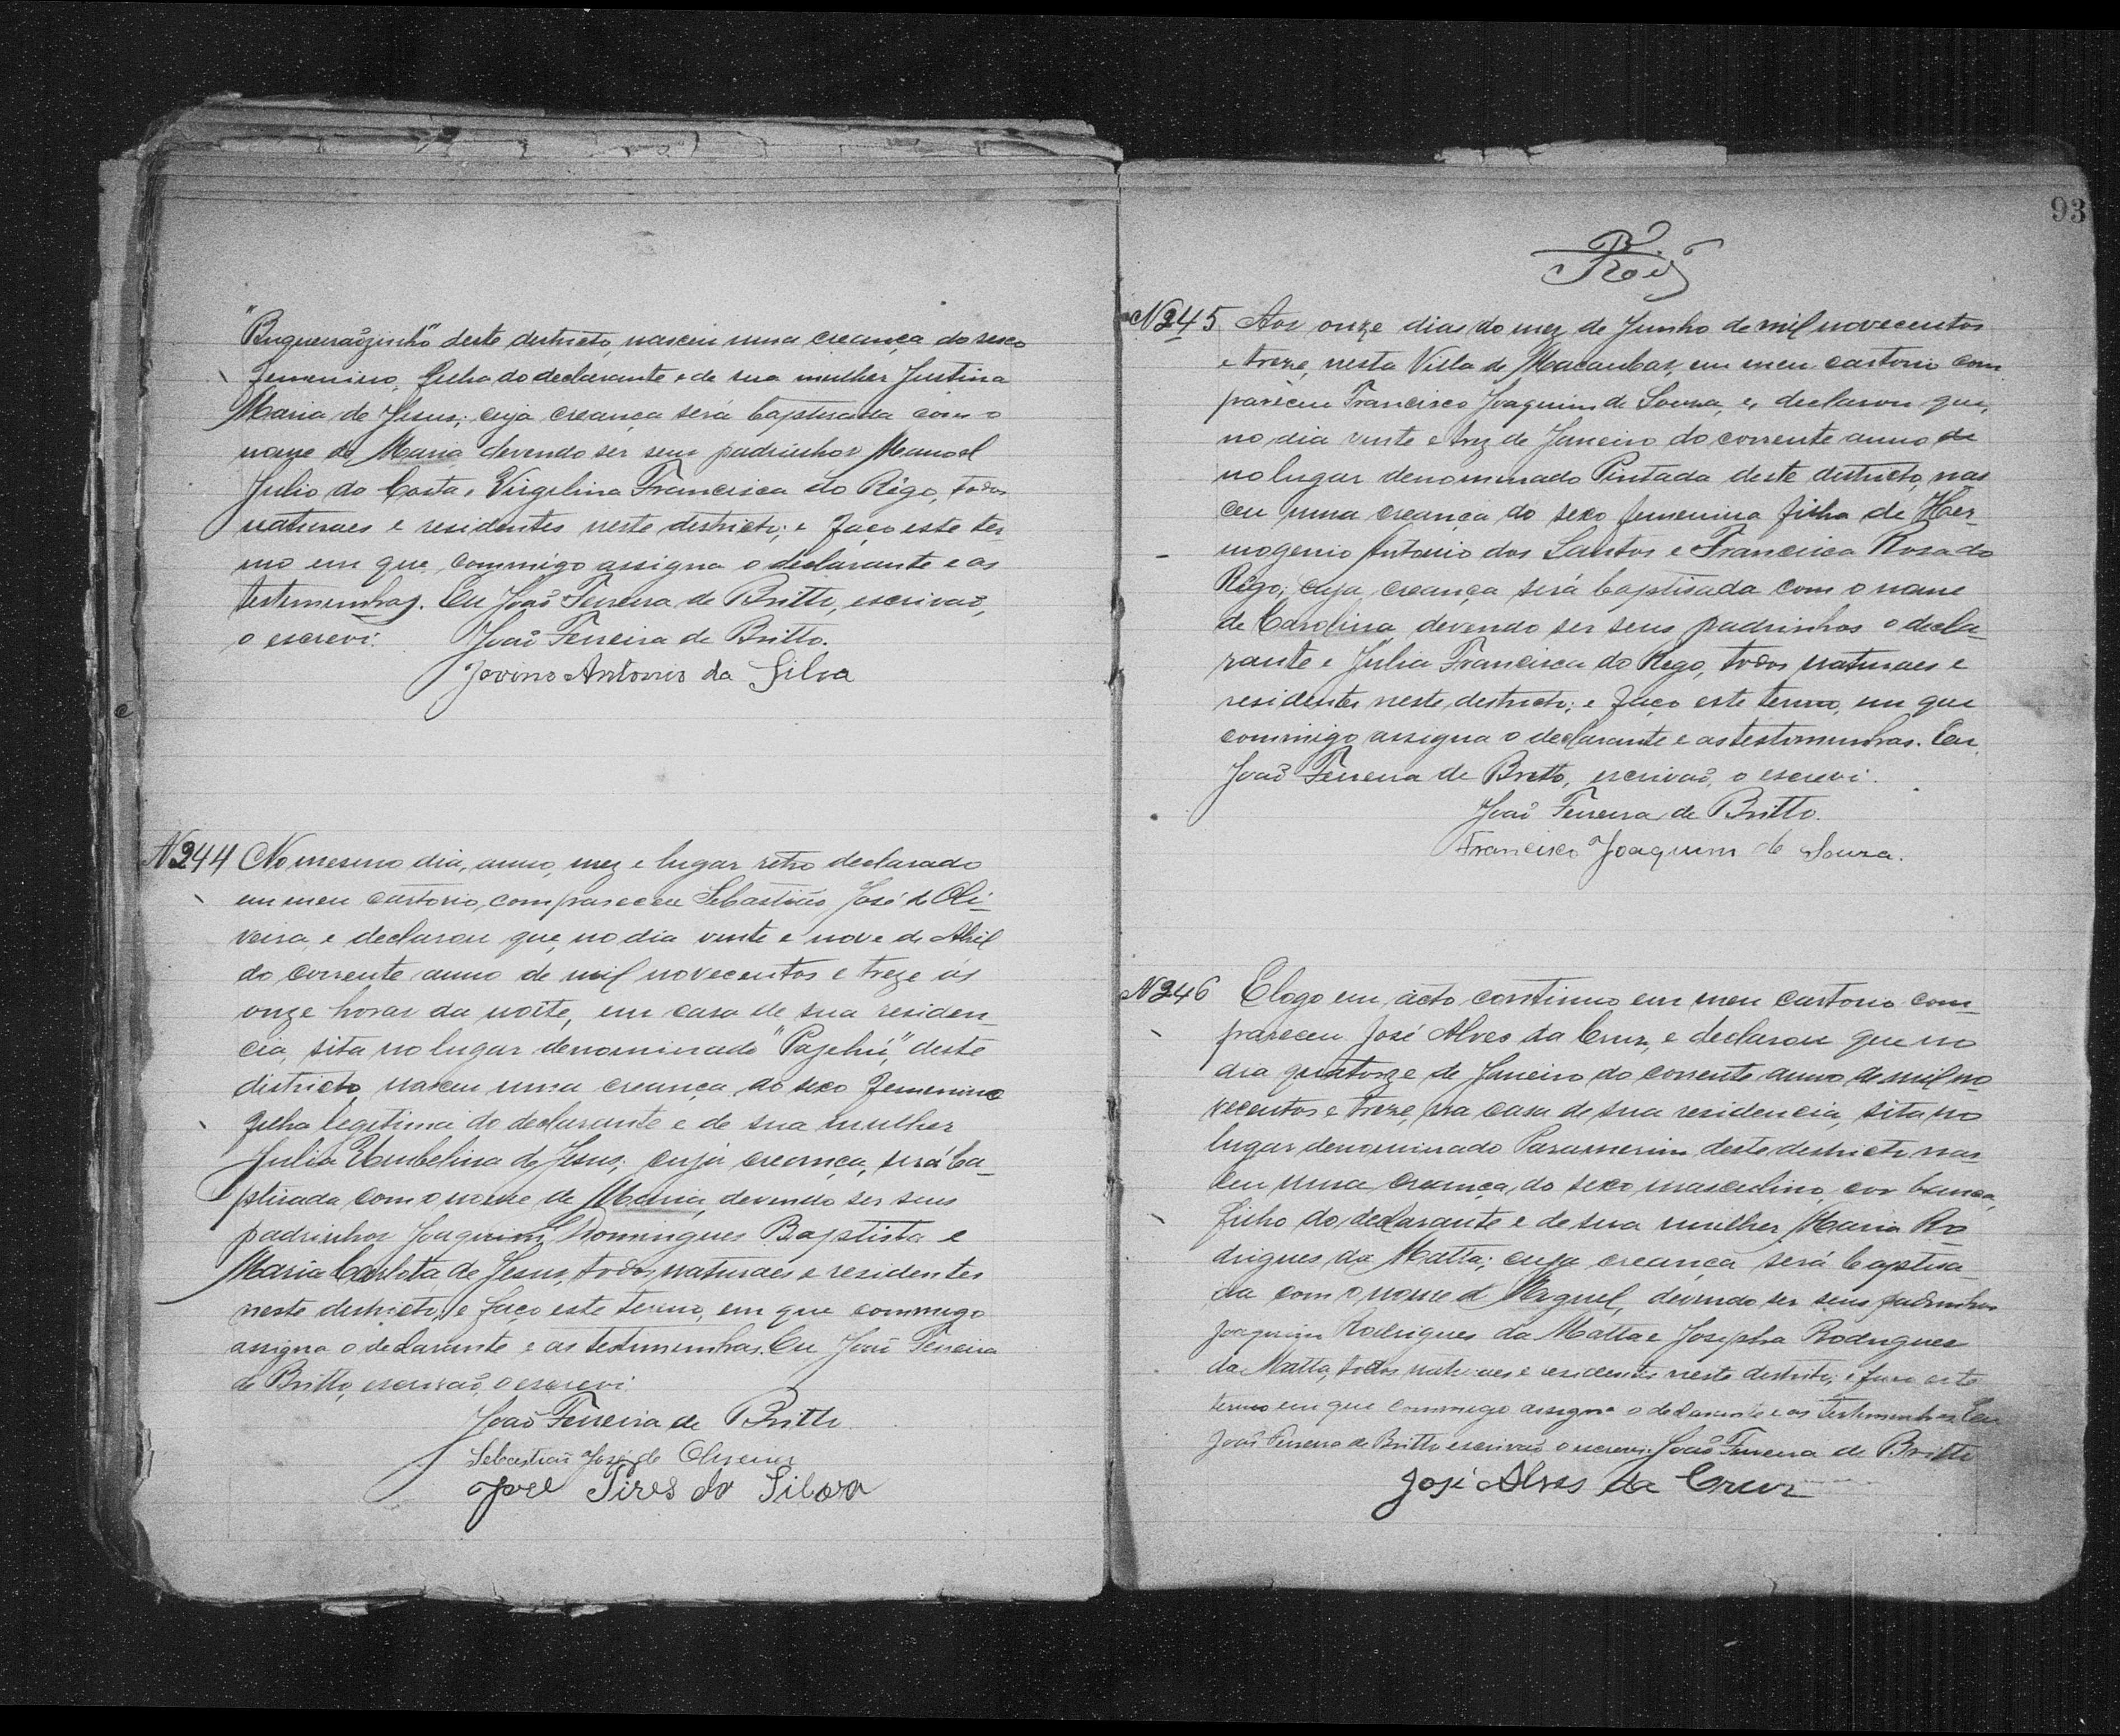 "Buqueirãozinho" deste districto, nasceu uma creança do sexo
femenino, filha do declarante e de sua mulher Justina
Maria de Jesus; cuja creança será baptisada com o
nome de Maria devendo ser seus padrinhos Manoel
Julio da Costa e Virgelina Francisca do Rêgo, todos
naturaes e residentes neste districto; e faço este ter-
mo em que commigo assigna o declarante e as
testemunhas. Eu João Ferreira de Britto, escrivão,
o escrevi. João Ferreira de Britto.
Jovino Antonio da Silva
N244 No mesmo dia, anno, mez e lugar retro declarado
em meu cartorio, compareceu Sebastião José de Oli-
veira, e declarou que, no dia vinte e nove de Abril
do corrente anno de mil novecentos e treze ás
onze horas da noite, em casa de sua residen-
cia, sita no lugar denominado "Pajehú," deste
districto nasceu uma creança do sexo femenino
filha legitima do declarante e de sua mulher
Julia Umbelina de Jesus; cuja creança, será ba-
ptisada com o nome de Maria, devendo ser seus
padrinhos Joaquim Domingues Baptista e
Maria Carlota de Jesus, todos naturaes e residentes
neste districto; e faço este termo, em que commigo
assigna o declarante e as testemunhas. Eu João Ferreira
de Britto, escrivão, o escrevi.
João Ferreira de Britto
Sebastião José de Oliveira
Joel Pires da Silva
93
N245 Aos onze dias do mez de Junho de mil novecentos
e treze, nesta Villa de Macaubas, em meu cartorio com
pareceu Francisco Joaquim de Souza, e, declarou que,
no dia vinte e trez de Janeiro do corrente anno de
no lugar denominado Pintada deste districto, nas
ceu uma creança do sexo femenino filha de Her-
mogenio Antonio dos Santos e Francisca Rosa do
Rêgo; cuja creança será baptisada com o nome
de Carolina devendo ser seus padrinhos o decla-
rante e Julia Francisca do Rego, todos naturaes e
residentes neste districto; e faço este termo, em que
commigo assigna o declarante e as testemunhas. Eu,
João Ferreira de Britto, escrivão, o escrevi.
João Ferreira de Britto.
Francisco Joaquim de Souza.
N246 E logo em acto continuo em meu cartorio com-
pareceu José Alves da Cruz, e declarou que no
dia quatorze de Janeiro do corrente anno de mil no-
vecentos e treze, na casa de sua residencia, sita no
lugar denominado Paramerim deste districto nas-
ceu uma creança, do sexo masculino, cor branca,
filho do declarante e de sua mulher Maria Ro
drigues da Matta; cuja creança será baptisa-
da com o nome de Miguel, devendo ser seus padrinhos
Joaquim Rodrigues da Matta e Josepha Rodrigues
da Matta, todos naturaes e residentes neste districto; e faço este
termo em que commigo assigna o declarante e as testemunhas. Eu
João Ferreira de Britto escrivão o escrevi. João Ferreira de Britto
José Alves da Cruz